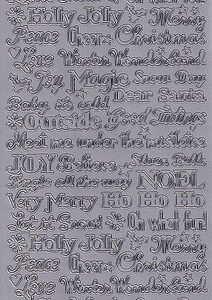 Holly Jolly Merry
Peace Cheer Christmas
Love Winter Wonderland
Joy Magic Snow Day
Dear Santa
Baby it's cold
Outside Good Tidings
Meet me under the mistletoe
JOY Believe Silver Bells
Jingle all the way NOEL
Very Merry Ho Ho Ho
Let it Snow! Oh what fun!
Holly Jolly Merry
Peace Cheer Christmas
Love Winter Wonderland